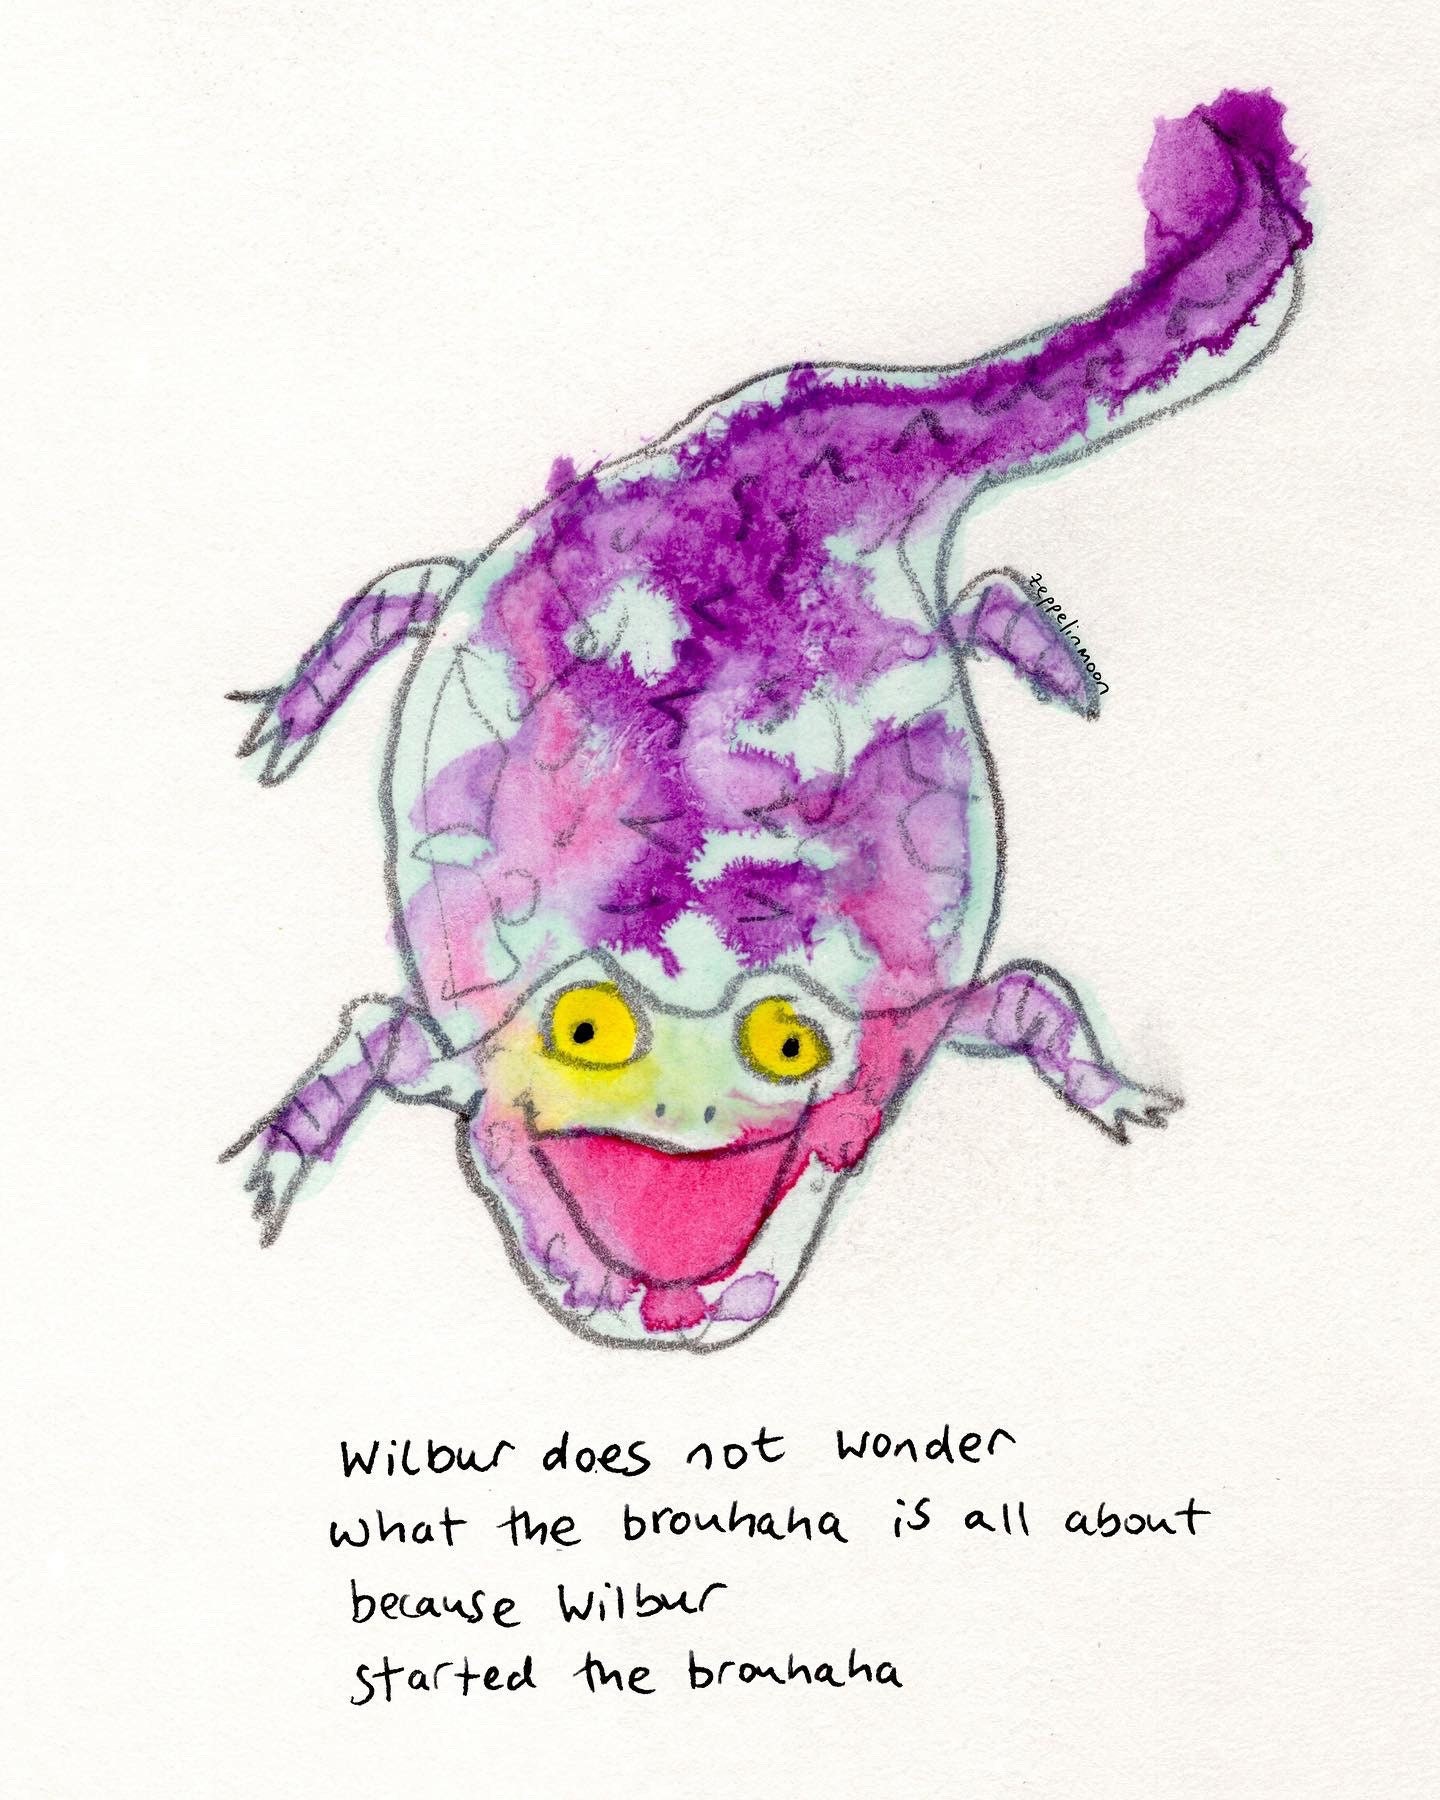 zeppelinmoon
Wilbur does not wonder
what the brouhaha is all about
because Wilbur
started the brouhaha